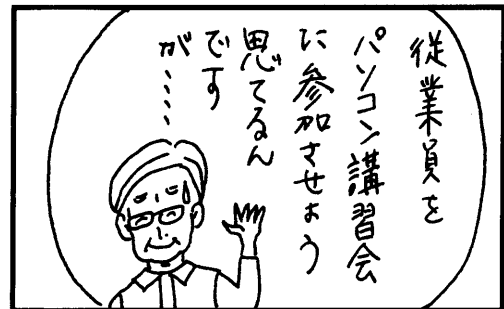 従業員を
パソコン講習会
に参加させよう
思てるん
です
が・・・・・